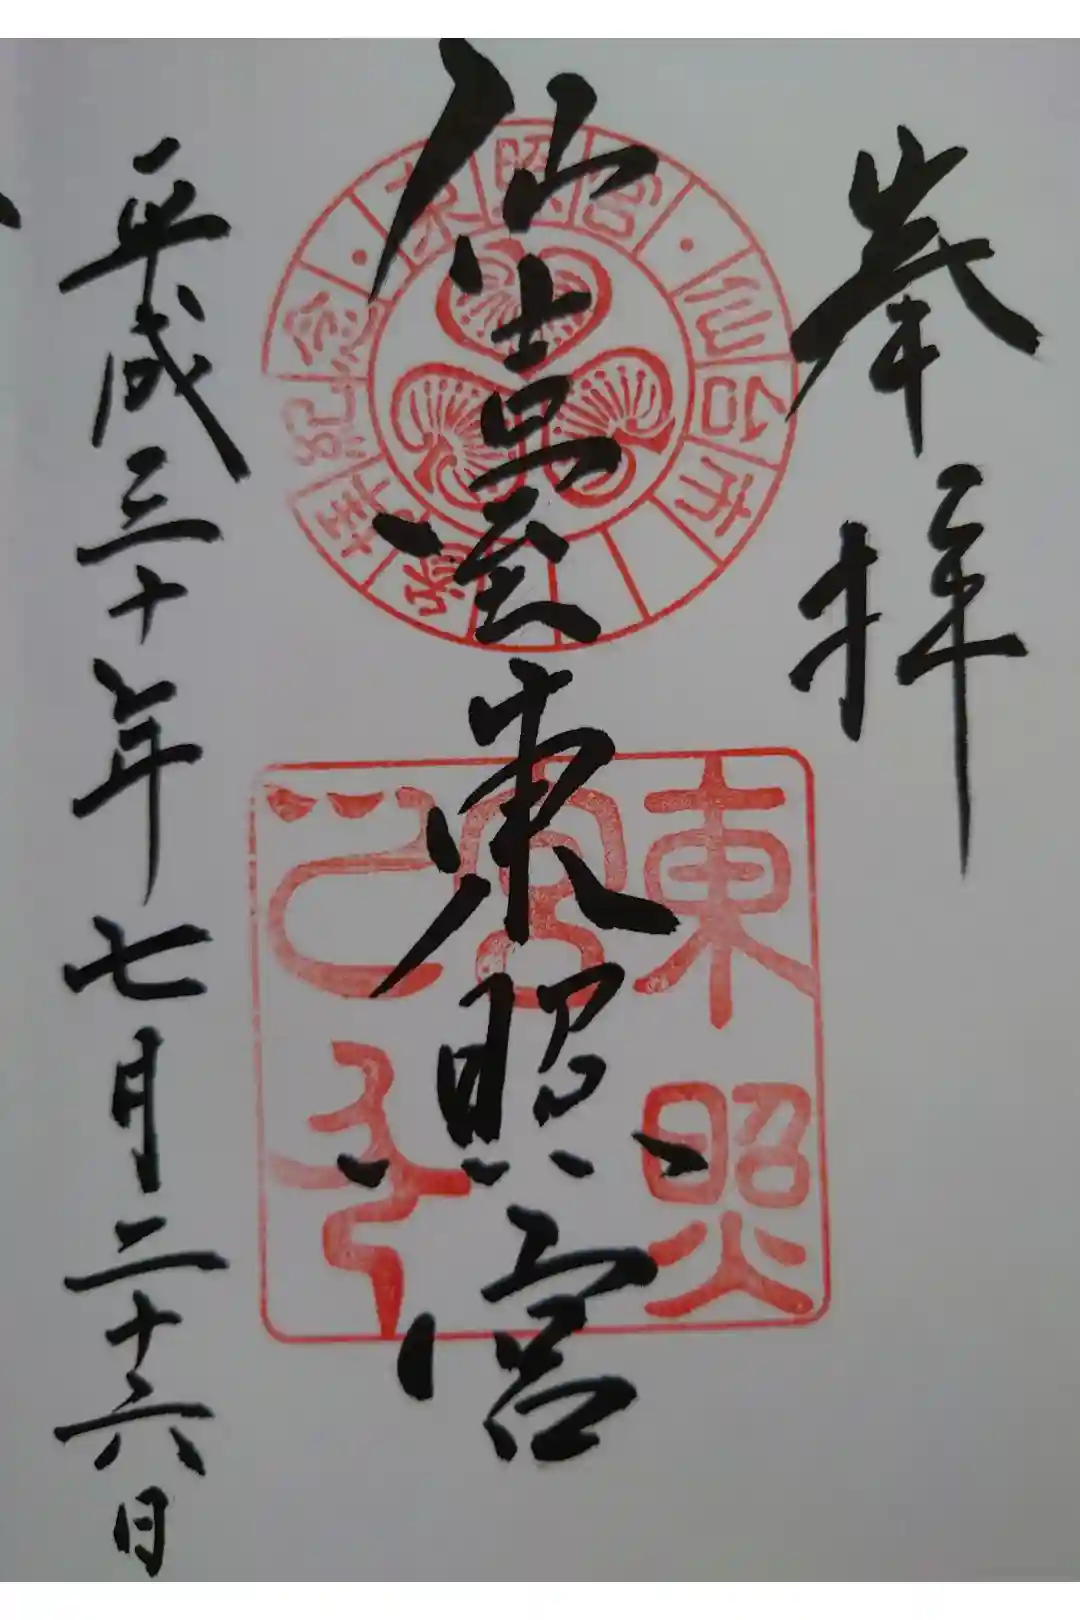 奉拝
仙臺東照宮
平成三十年七月二十六日
東照宮
仙台市
東照
宮